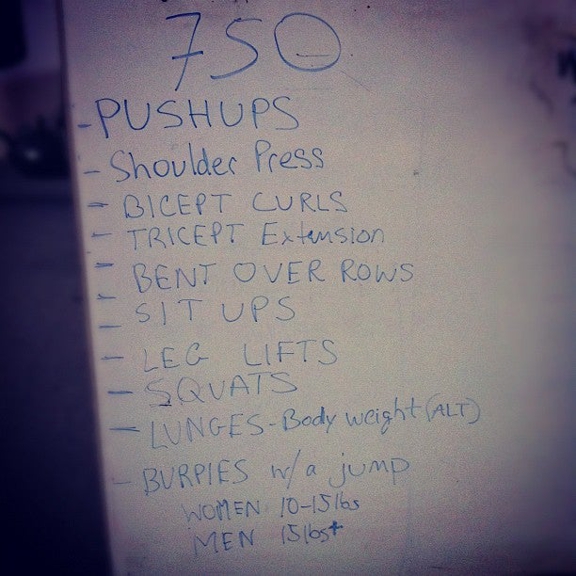 750
- PUSHUPS
- Shoulder Press
- BICEPT CURLS
- TRICEPT Extension
- BENT OVER ROWS
- SIT UPS
- LEG LIFTS
- SQUATS
- LUNGES - Body weight (ALT)
- BURPIES w/a jump
WOMEN 10-15lbs
MEN 15lbs+